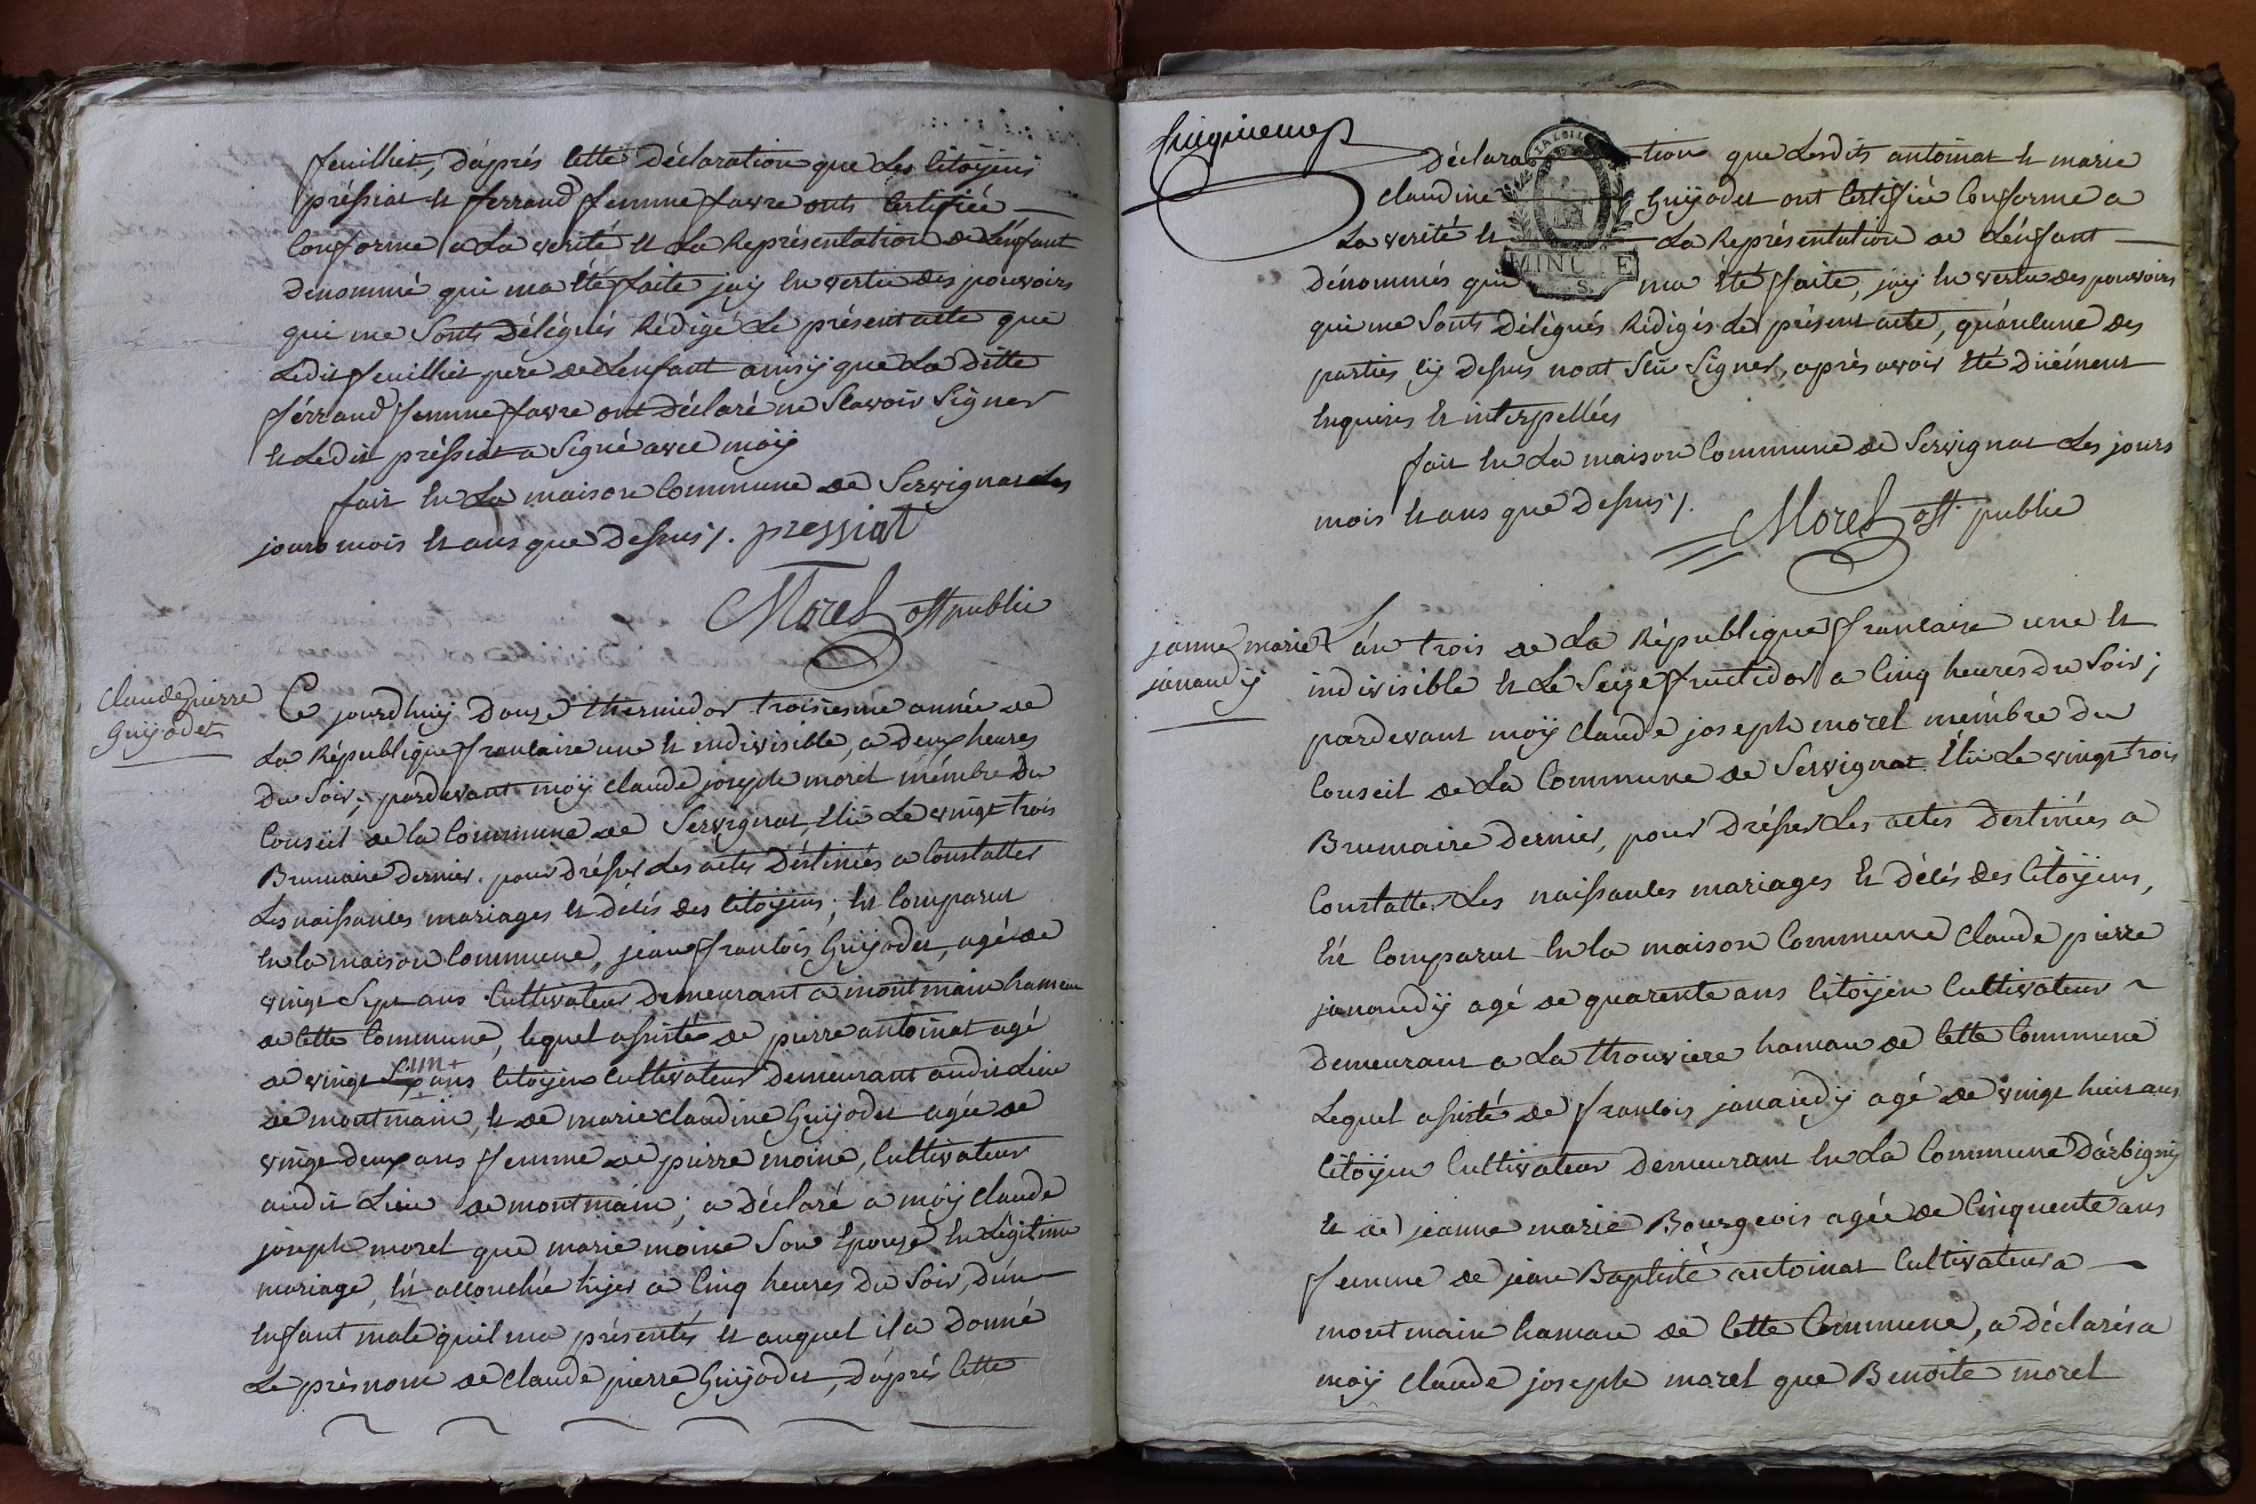 feuillet, d'aprés cette déclaration que les citoÿens
préssiat et ferrand femme favre onts certifiée
conforme a la verité et la Représentation de l'enfant
dénommé qui ma été faite jaÿ en vertu des pouvoirs
qui me sonts délégués Rédigé le présent acte que
ledit feuillet pere de l'enfant ainsÿ que la ditte
férrand femme favre ont déclaré ne scavoir signer
et ledit préssiat a signé avec moÿ
fait en la maison commune de Servignat les
jours mois et ans que dessus ./. pressiat
Morel off public
Claude pierre
Guÿodet
Ce jourdhuÿ douze thermidor troisiesme année de
la République francaise une et indivisible, a deux heures
du soir; pardevant moÿ claude joseph morel mémbre du
Conseil de la commune de Servignat, élû le vingt trois
Brumaire dernier. pour drésser les actes déstinés a constatter
les naissances mariages et décés des citoÿens; est comparut
en la maison commune, jean francois Guÿodet, agé de
vingt sept ans cultivateur demeurant a montmain hameau
de cette commune, lequel assisté de pierre antoinat agé
un+
de vingt ans citoÿen cultivateur demeurant audit lieu
de montmain, et de marie claudine Guÿodet agée de
vingt deux ans femme de pierre moine, cultivateur
audit lieu de montmain; a déclaré a moÿ claude
joseph morel que marie moine son épouze en légitime
mariage, est accouchée hijer a cinq heures du soir, d'un
enfant male quil ma présentés et auquel il a donné
le prénom de claude pierre Guÿodet, d'aprés cette
déclaration que lesdits antoinat et marie
claudine Guÿodet ont certifié conforme a
la verité et la Représentation de l'énfant
MINUTE
S.
dénommés qui ma été faite, jaÿ en vertu des pouvoirs
qui me sonts délégués Rédigés le présent acte, qu'aucune des
parties cÿ dessus nont scû signer, aprés avoir été duément
enquires et interpellées
fait en la maison commune de Servignat les jours
mois et ans que dessus ./.
Morel off. public
janne marie
janaudÿ
L'an trois de la République francaise une et
indivisible et le seize fructidor a cinq heures du soir;
pardevant moÿ claude joseph morel mémbre du
Conseil de la Commune de Servignat élû le vingt trois
Brumaire dernier, pour drésser les actes destinées a
Constatter les naissances mariages et décés des citoÿens,
est comparut en la maison commune claude pierre
janaudÿ agé de quarente ans citoÿen cultivateur
demeurant a la thouviere hamau de cette commune
lequel assisté de francois janaudÿ agé de vingt huit ans
citoÿen cultivateur demeurant en la commune d'árbignÿ
et de jeanne marie Bourgeois agée de cinquente ans
femme de jean Baptiste antoinat cultivateur a
montmain hamau de cette commune, a déclarés a
moÿ claude joseph morel que Benoite morel